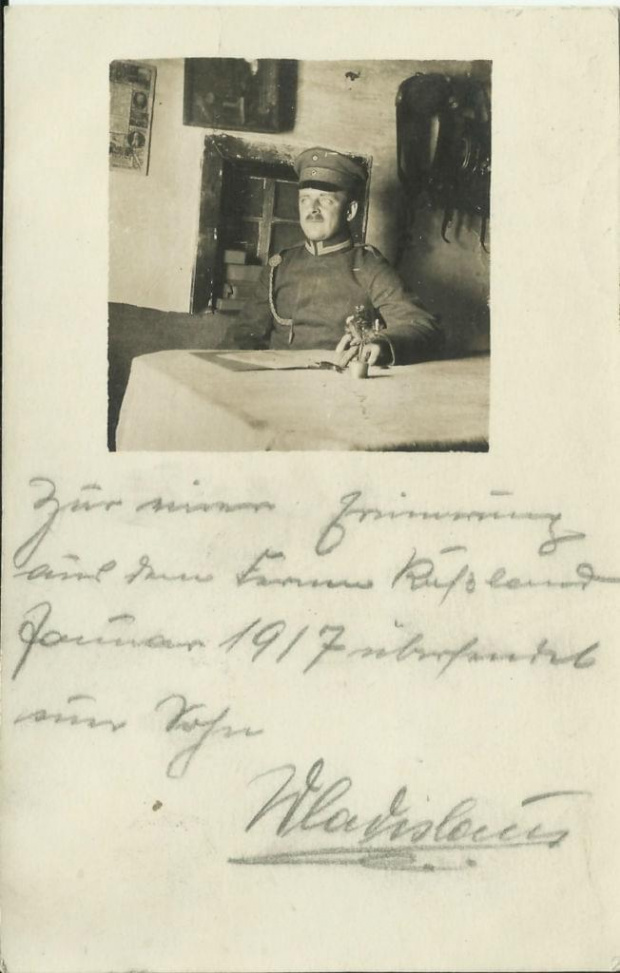 Zur einer Erinnerung
aus dem Fernen Rußland
Januar 1917 übersendet
euer Sohn
Wladislaus